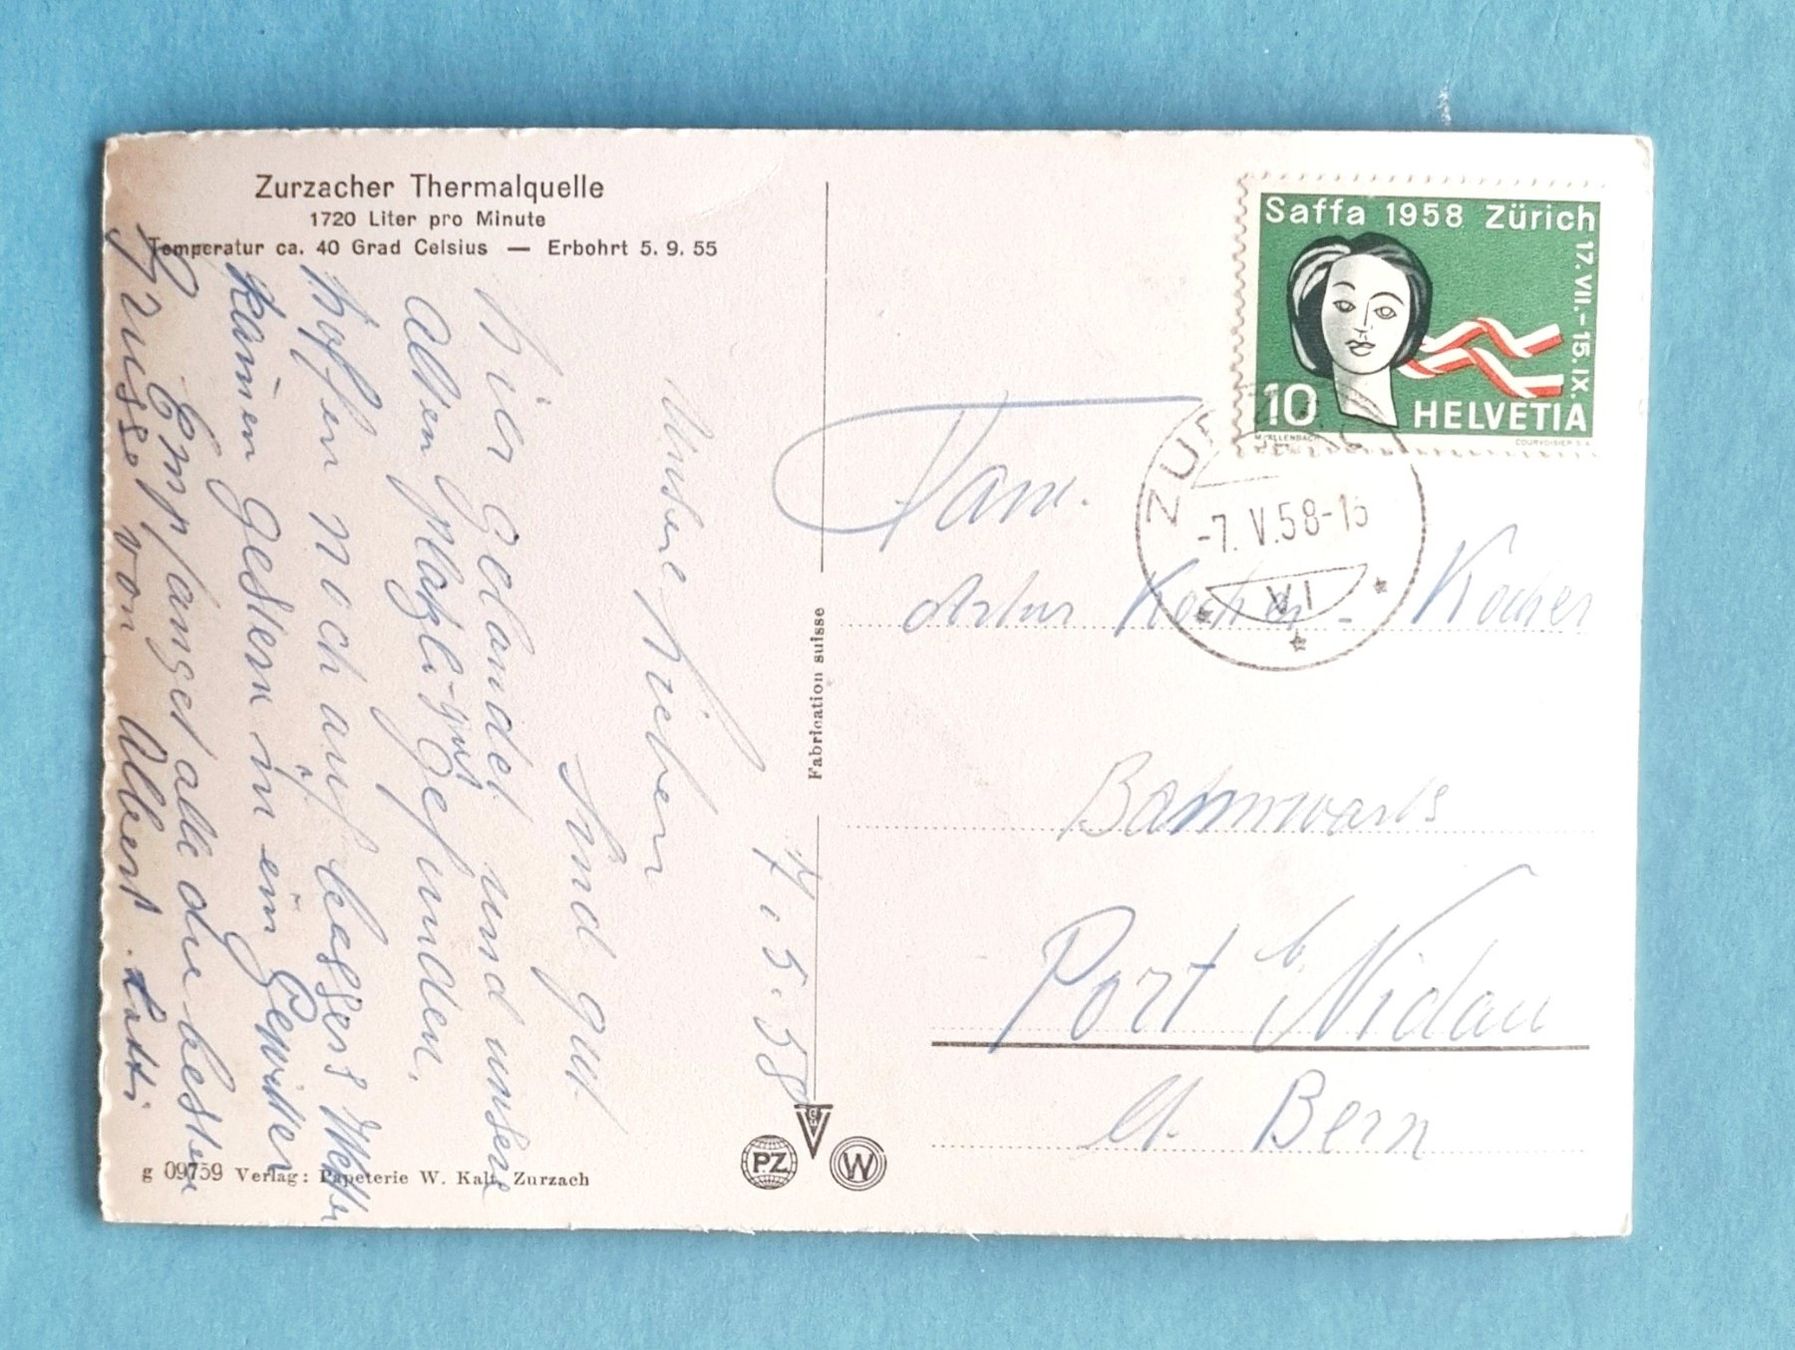 Zurzacher Thermalquelle
1720 Liter pro Minute
Temperatur ca. 40 Grad Celsius — Erbohrt 5. 9. 55
7.5.58
Unsere Lieben
Sind gut
hier gelandet und unsere
alten Plätzli gut Gefunden.
hoffen noch auf bessers Wetter
kamen gestern in ein Gewitter
Empfanget alle die besten
Grüsse von Albert
g 09759 Verlag: Papeterie W. Kalt, Zurzach
Fabrication suisse
PZ
W
Saffa 1958 Zürich
17.VII.–15.IX.
10 HELVETIA
M. ALLENBACH
COURVOISIER S.A.
-7. V. 58-
VI
Fam.
Kocher - Kocher
Bahnwärts
Port b. Nidau
Kt. Bern